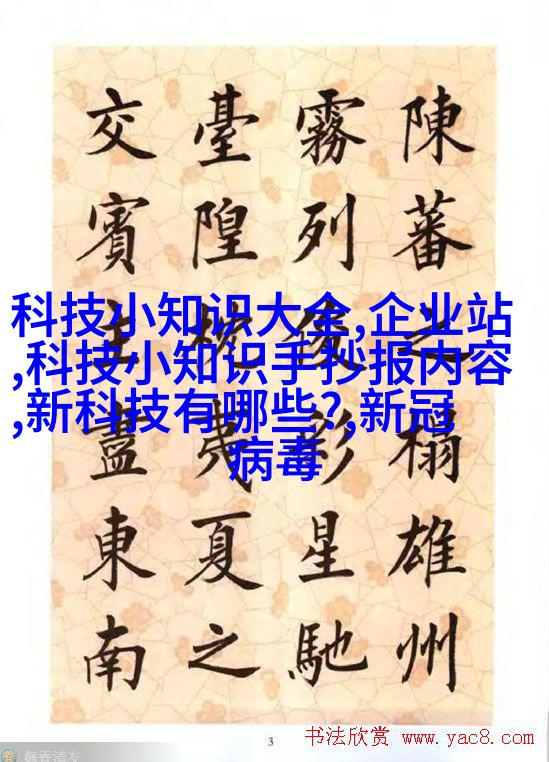 陳蕃之榻雄州
霧列俊彩星馳
臺隍枕夷夏之
交賓主盡東南
科技小知识大全,企业站
,科技小知识手抄报内容
,新科技有哪些?,新冠
病毒
3
书法欣赏 www.yac8.com